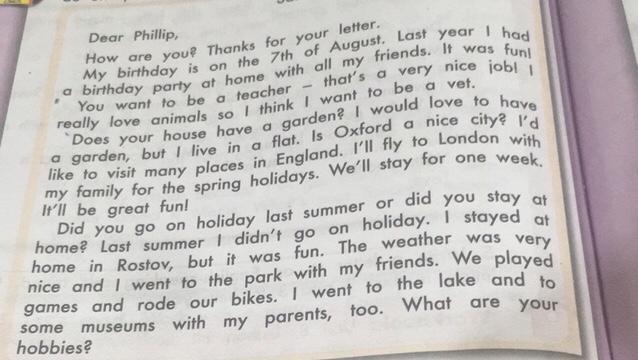 Dear Phillip,
How are you? Thanks for your letter.
My birthday is on the 7th of August. Last year I had
a birthday party at home with all my friends. It was fun!
You want to be a teacher – that's a very nice job! I
really love animals so I think I want to be a vet.
Does your house have a garden? I would love to have
a garden, but I live in a flat. Is Oxford a nice city? I'd
like to visit many places in England. I'll fly to London with
my family for the spring holidays. We'll stay for one week.
It'll be great fun!
Did you go on holiday last summer or did you stay at
home? Last summer I didn't go on holiday. I stayed at
home in Rostov, but it was fun. The weather was very
nice and I went to the park with my friends. We played
games and rode our bikes. I went to the lake and to
some museums with my parents, too. What are your
hobbies?